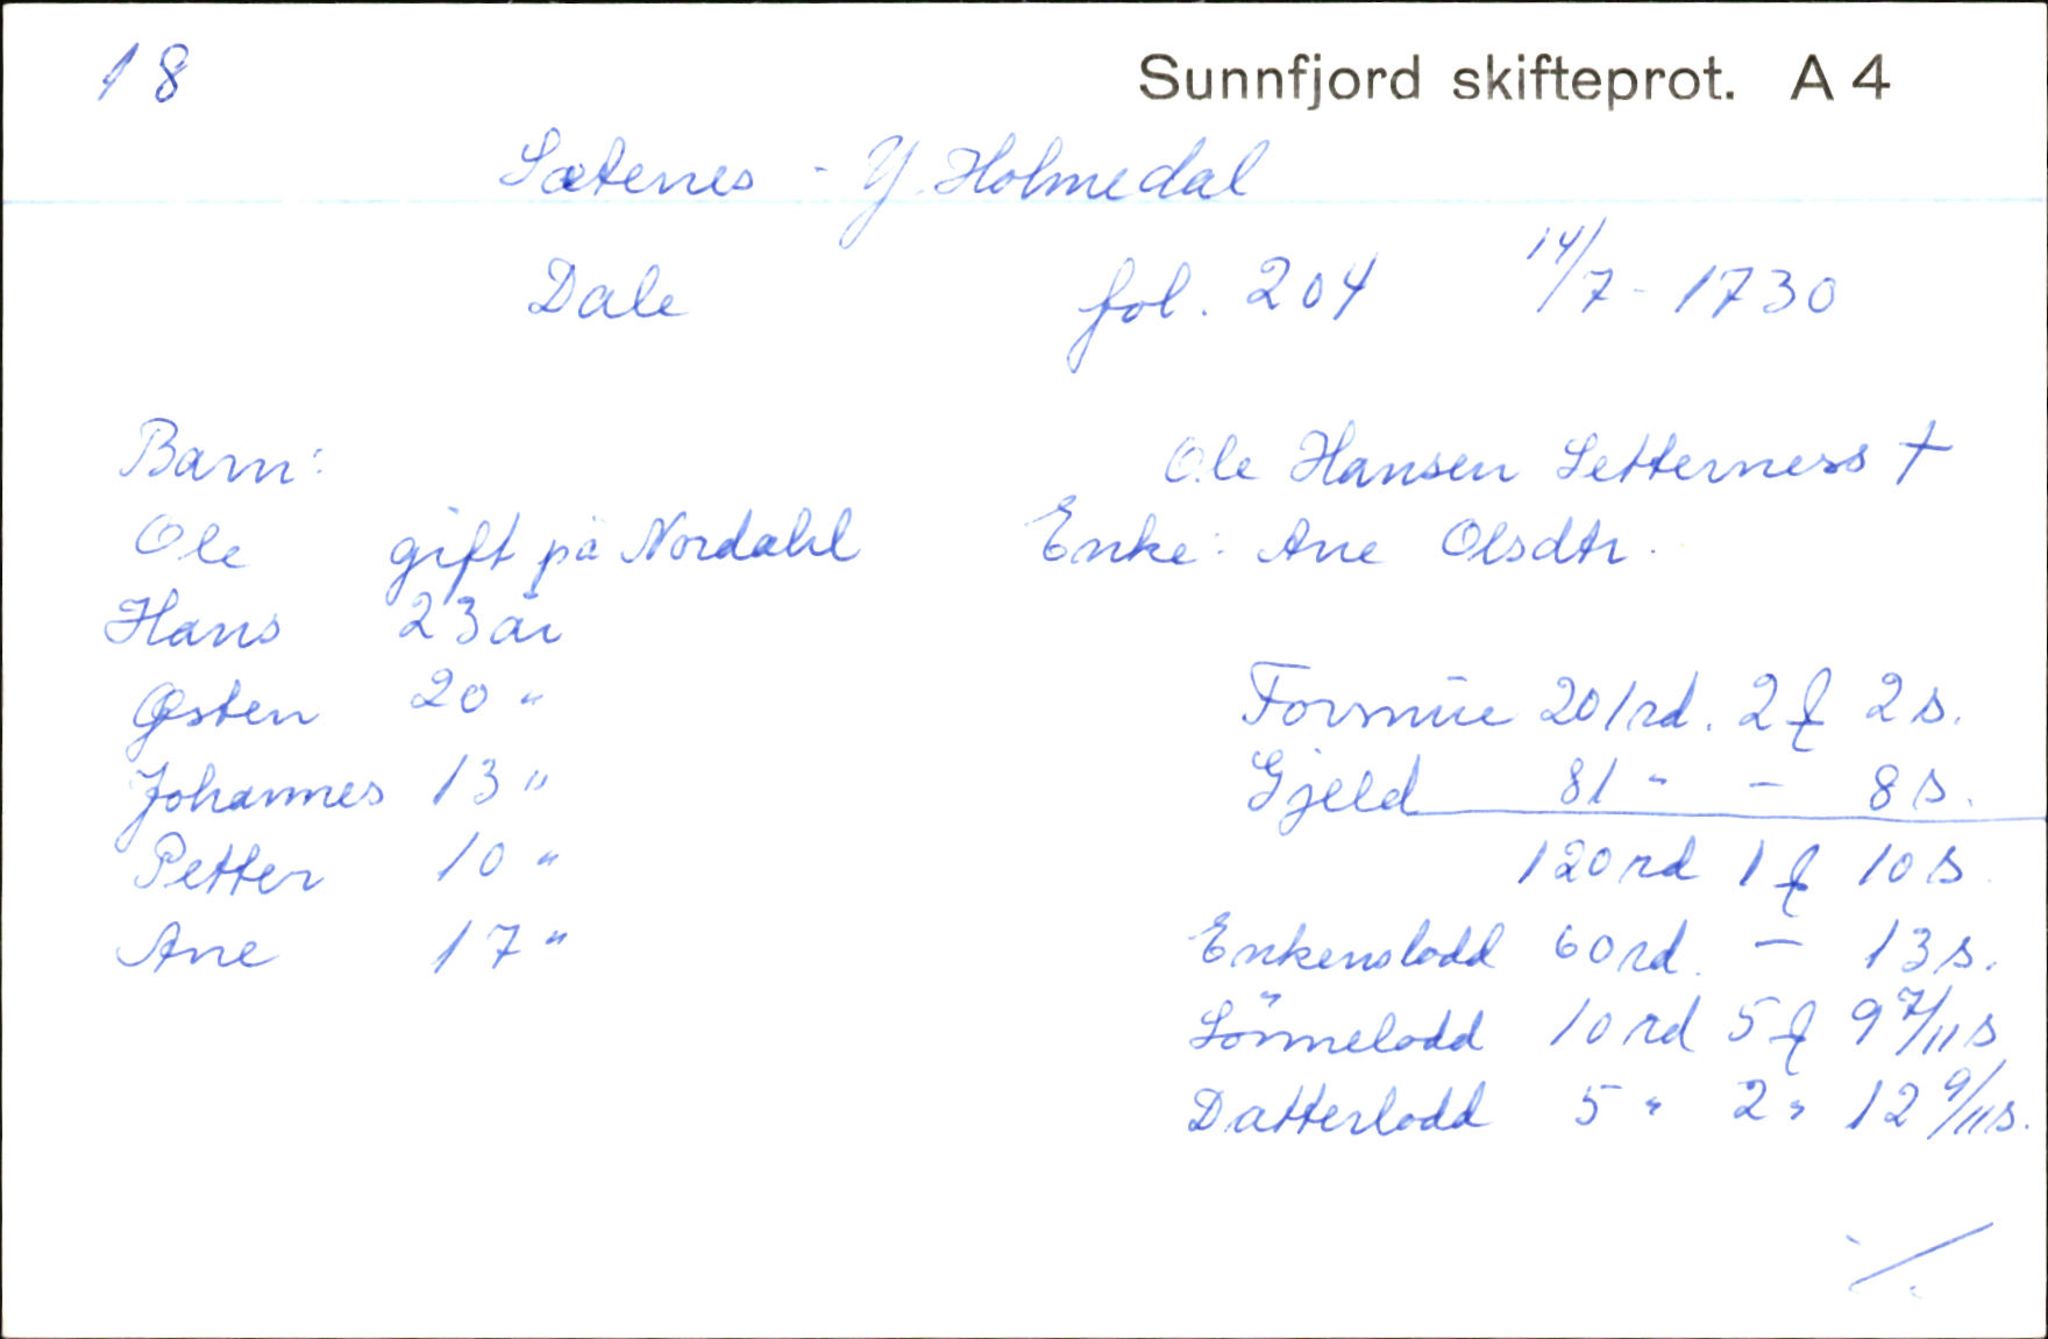 18 Sunnfjord skifteprot. A 4
Sætenes - Y. Holmedal
Dale fol. 204 14/7 - 1730
Barn: Ole Hansen Setterness †
Ole gift på Nordahl Enke: Ane Olsdtr.
Hans 23 år
Østen 20 "
Johannes 13 "
Petter 10 "
Ane 17 "
Formue 201 rd. 2 ℓ 2 s.
Gjeld 81 " - 8 s.
120 rd 1 ℓ 10 s.
Enkenslodd 60 rd. - 13 s.
Sönnelodd 10 rd 5 ℓ 9 7/11 s
Datterlodd 5 " 2 " 12 9/11 s.
./.